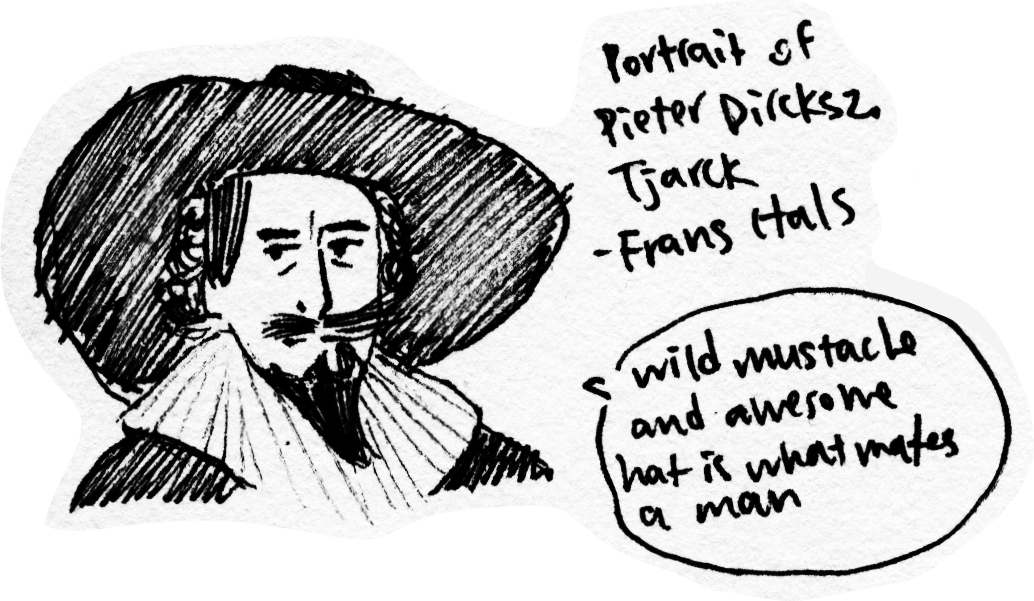 Portrait of
Pieter Dircksz.
Tjarck
-Frans Hals
wild mustache
and awesome
hat is what makes
a man